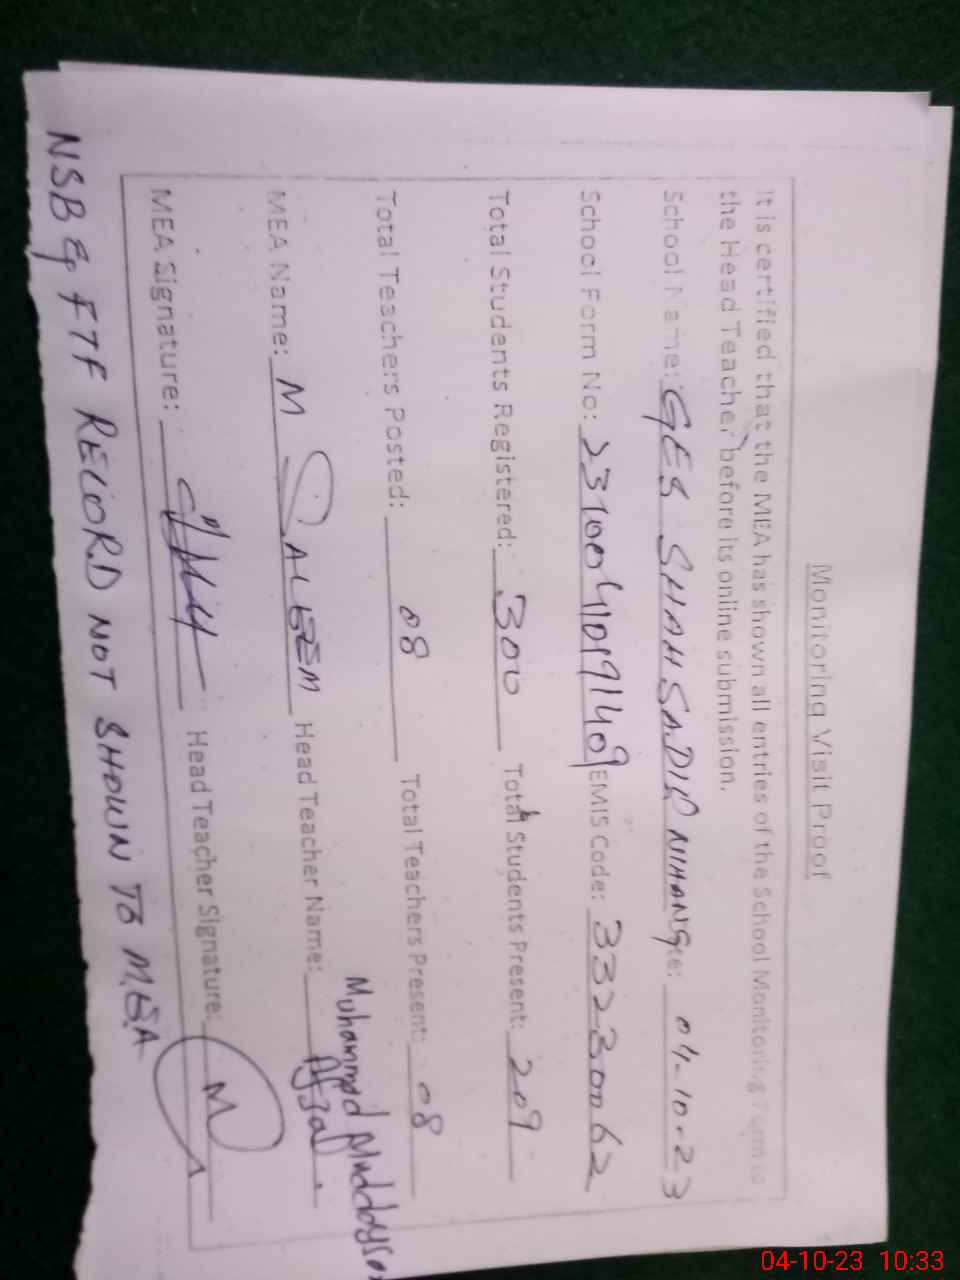 Monitoring Visit Proof
It is certified that the MEA has shown all entries of the School Monitoring Form to
the Head Teacher before its online submission.
School Name: GES SHAH SADIQ NIHANG te: 04-10-23
School Form No: EMIS Code: 33230062
Total Students Registered: 300 Total Students Present: 209
Total Teachers Posted: 08 Total Teachers Present: 08
Muhammad
MEA Name: M SALEEM Head Teacher Name: Afzal
MEA Signature: Head Teacher Signature: M
NSB & FTF RECORD NOT SHOWN TO MEA
04-10-23 10:33